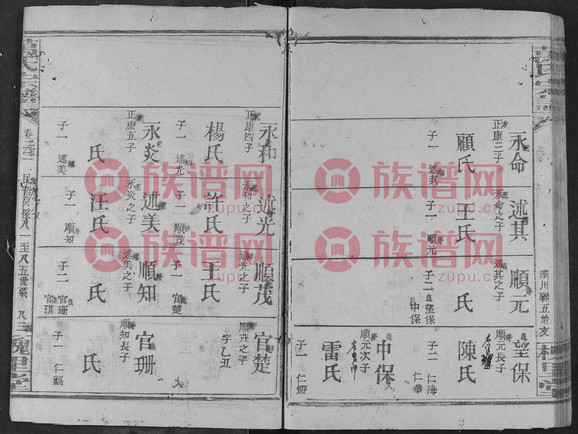 漢川縣五增支
永命
正康三子
顧氏
子一
述其
述其
永命之子
王氏
子一
順元
順元
述其之子
氏
子二
望保
中保
望保
順元長子
陳氏
子二
仁海
仁華
中保
順元次子
雷氏
子一
永和
正康四子
楊氏
子一
述光
永炎
正康五子
氏
子一
述美
述光
永和之子
許氏
子一
順茂
述美
永炎之子
汪氏
子一
順知
順茂
述光之子
王氏
子一
官楚
順知
述美之子
氏
子二
官珊
官琪
官楚
順茂之子
字乙丑
官珊
順知長子
氏
子一
仁福
族谱网
族谱网
族谱网
族谱网